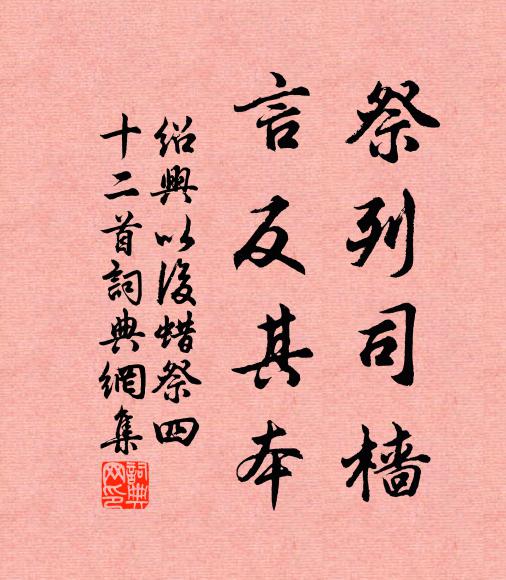 祭列司檣
言反其本
紹興以後蜡祭四
十二首詞典網集
詞典
网印